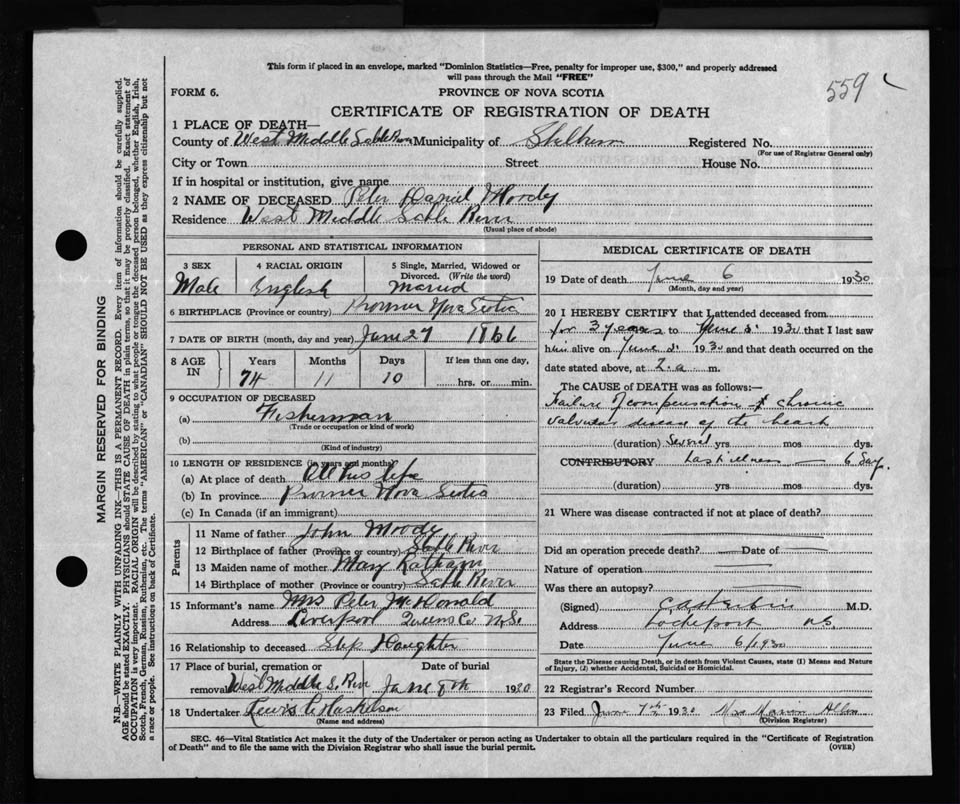 This form if placed in an envelope, marked "Dominion Statistics—Free, penalty for improper use, $300," and properly addressed
will pass through the Mail "FREE"
559
FORM 6.
PROVINCE OF NOVA SCOTIA
CERTIFICATE OF REGISTRATION OF DEATH
1 PLACE OF DEATH—
County of West Middle Sable River Municipality of Shelburn Registered No.
(For use of Registrar General only)
City or Town Street House No.
If in hospital or institution, give name
2 NAME OF DECEASED Peter Daniel Moody
Residence West Middle Sable River
(Usual place of abode)
PERSONAL AND STATISTICAL INFORMATION
3 SEX 4 RACIAL ORIGIN 5 Single, Married, Widowed or
Divorced. (Write the word)
Male English Married
6 BIRTHPLACE (Province or country) Nova Scotia
7 DATE OF BIRTH (month, day and year) June 27 1866
8 AGE IN Years Months Days If less than one day,
74 11 10 hrs. or min.
9 OCCUPATION OF DECEASED
(a) Fisherman
(Trade or occupation or kind of work)
(b)
(Kind of industry)
10 LENGTH OF RESIDENCE (in years and months)
(a) At place of death All his life
(b) In province Nova Scotia
(c) In Canada (if an immigrant)
Parents
11 Name of father John Moody
12 Birthplace of father (Province or country) Sable River
13 Maiden name of mother Mary
14 Birthplace of mother (Province or country) Sable River
15 Informant's name Mrs Peter McDonald
Address Liverpool Queens Co N.S.
16 Relationship to deceased Step Daughter
17 Place of burial, cremation or Date of burial
removal West Middle S. River June 8th 1930
18 Undertaker Lewis
(Name and address)
MEDICAL CERTIFICATE OF DEATH
19 Date of death June 6 1930
(Month, day and year)
20 I HEREBY CERTIFY that I attended deceased from
for 3 years to June 5 1930 that I last saw
him alive on June 5 1930 and that death occurred on the
date stated above, at 2 a m.
The CAUSE of DEATH was as follows:—
Failure of compensation of chronic
valvular disease of the heart
(duration) Several yrs. mos. dys.
CONTRIBUTORY Last illness — 6 days.
(duration) yrs. mos. dys.
21 Where was disease contracted if not at place of death?
Did an operation precede death? — Date of —
Nature of operation —
Was there an autopsy? —
(Signed) M.D.
Address Lockeport N.S.
Date June 6/1930
State the Disease causing Death, or in death from Violent Causes, state (1) Means and Nature
of Injury, (2) whether Accidental, Suicidal or Homicidal.
22 Registrar's Record Number
23 Filed June 7th 1930 Mrs Allen
(Division Registrar)
SEC. 46—Vital Statistics Act makes it the duty of the Undertaker or person acting as Undertaker to obtain all the particulars required in the "Certificate of Registration
of Death" and to file the same with the Division Registrar who shall issue the burial permit.
(OVER)
MARGIN RESERVED FOR BINDING
N.B.—WRITE PLAINLY WITH UNFADING INK—THIS IS A PERMANENT RECORD. Every item of information should be carefully supplied.
AGE should be stated EXACTLY. PHYSICIANS should STATE CAUSE OF DEATH in plain terms, so that it may be properly classified. Exact statement of
OCCUPATION is very important. RACIAL ORIGIN will be described by stating to what people or tongue the deceased person belonged, whether English, Irish,
Scotch, French, German, Russian, Ruthenian, etc. The terms "AMERICAN" or "CANADIAN" SHOULD NOT BE USED as they express citizenship but not
a race or people. See instructions on back of Certificate.